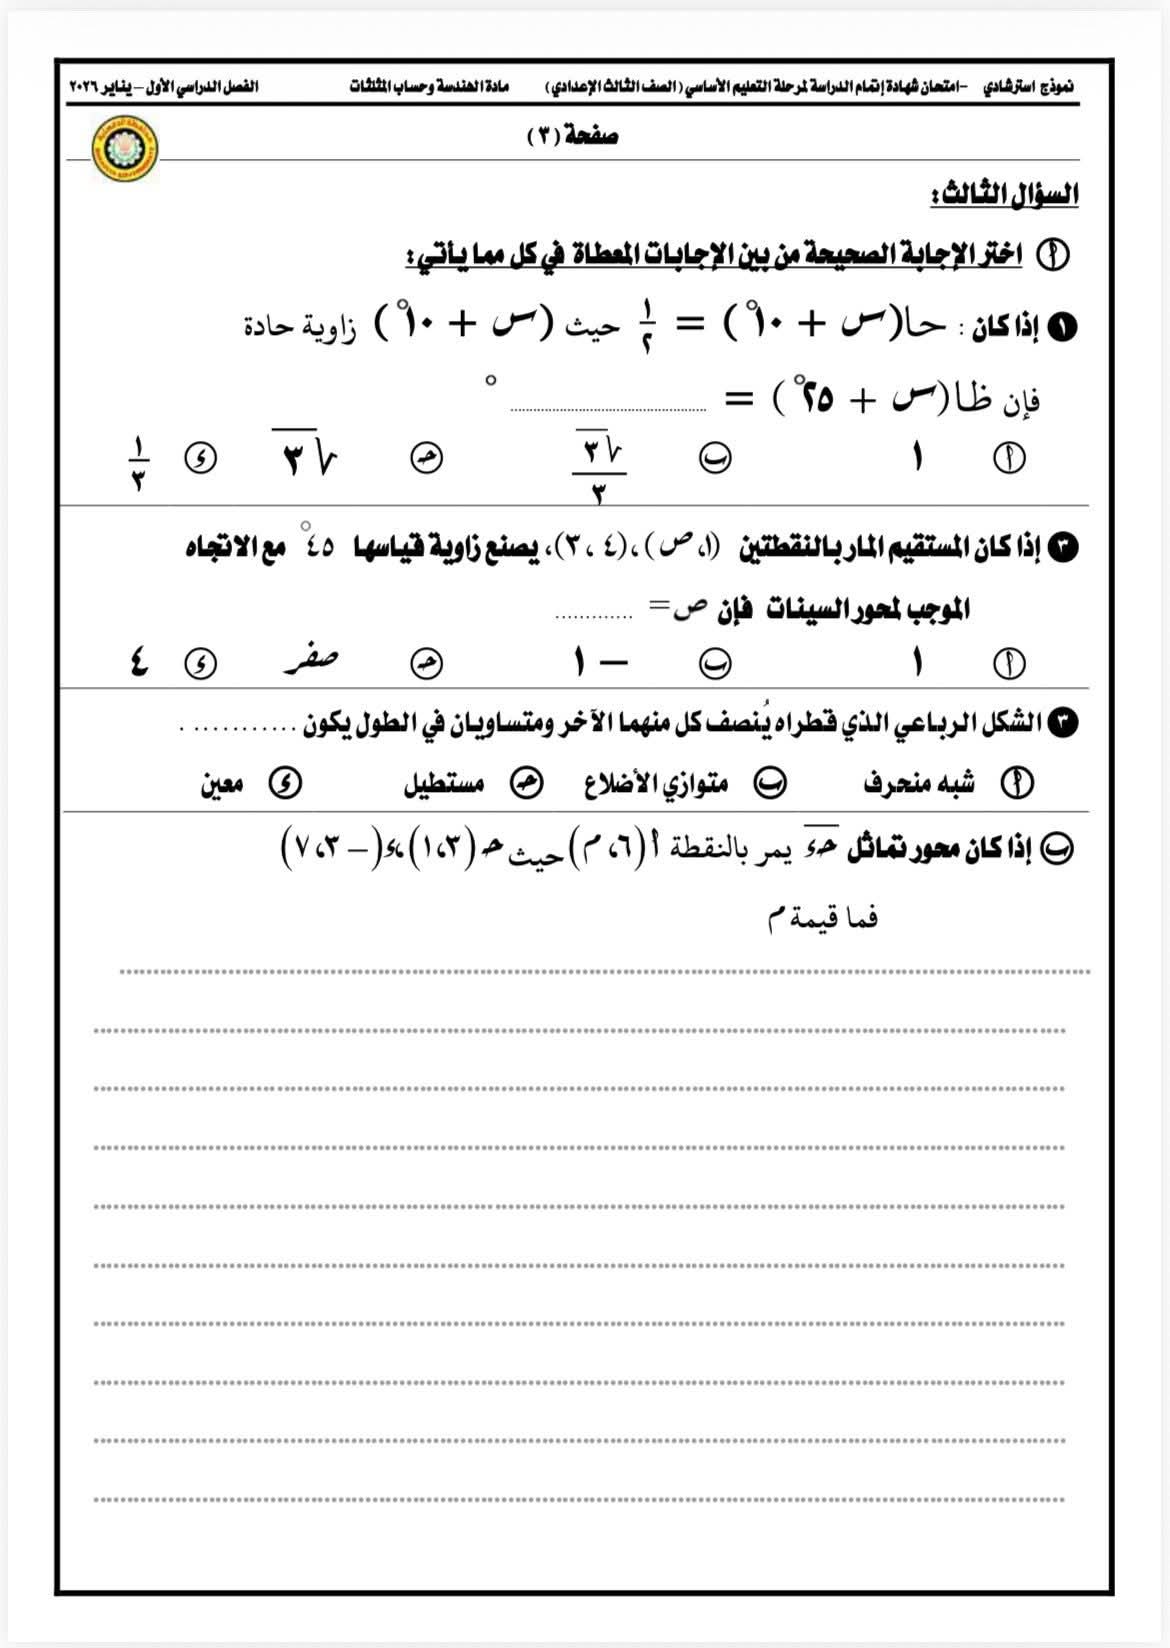 نموذج استرشادي – امتحان شهادة إتمام الدراسة لمرحلة التعليم الأساسي ( الصف الثالث الإعدادي ) مادة الهندسة وحساب المثلثات الفصل الدراسي الأول – يناير ٢٠٢٦
صفحة ( ٣ )
السؤال الثالث :
أ اختر الإجابة الصحيحة من بين الإجابات المعطاة في كل مما يأتي :
١ إذا كان : حا(س + ١٠°) = ١/٢ حيث (س + ١٠°) زاوية حادة
فإن ظا(س + ٢٥°) = .............................. °
أ ١ ب √٣/٣ ح √٣ ء ١/٣
٣ إذا كان المستقيم المار بالنقطتين (١، ص) ، (٤ ، ٣)، يصنع زاوية قياسها ٤٥° مع الاتجاه
الموجب لمحور السينات فإن ص = .............
أ ١ ب – ١ ح صفر ء ٤
٣ الشكل الرباعي الذي قطراه يُنصف كل منهما الآخر ومتساويان في الطول يكون ............ .
أ شبه منحرف ب متوازي الأضلاع ح مستطيل ء معين
ب إذا كان محور تماثل حء يمر بالنقطة أ (٦، م) حيث ح (٣، ١) ، ء (–٣، ٧)
فما قيمة م